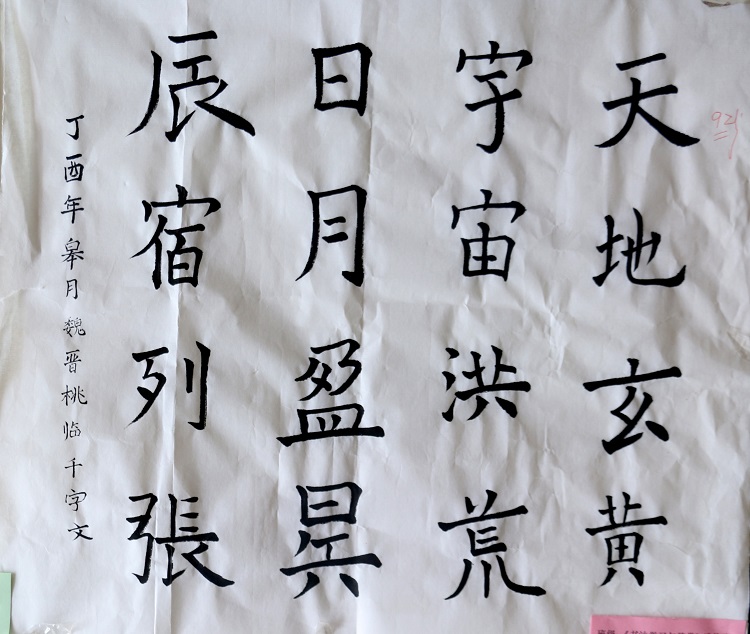 天地玄黄
宇宙洪荒
日月盈昃
辰宿列張
丁酉年皋月魏晋桃临千字文